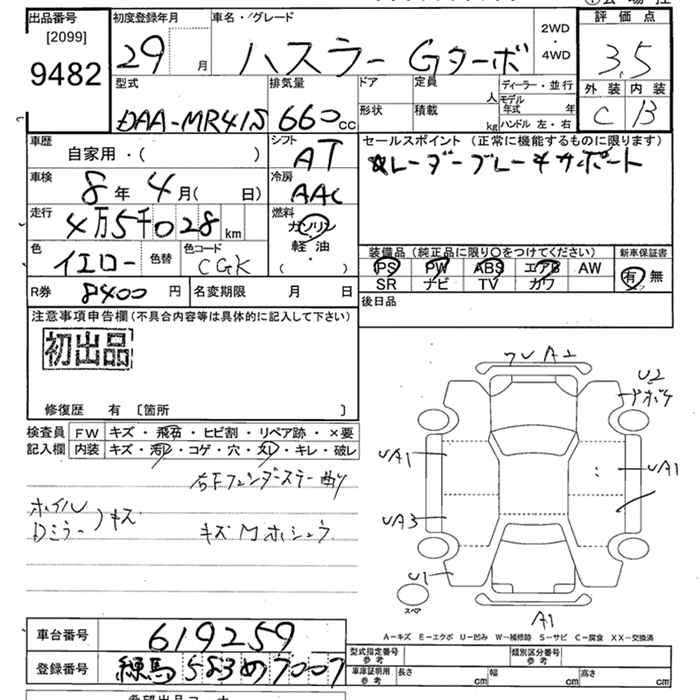 出品番号 初度登録年月 車名・グレード 評価点
[2099] 29 月 ハスラー Gターボ 2WD 4WD 3.5
9482 外装 内装
型式 排気量 ドア 定員 人 ディーラー・並行 C B
DAA-MR41S 660cc 形状 積載 kg モデル年式 年 ハンドル 左・右
車歴 自家用・( ) シフト AT セールスポイント(正常に機能するものに限ります)
レーダーブレーキサポート
車検 8年 4月( 日) 冷房 AAC
走行 4万5千028km 燃料 ガソリン 軽油 ( ・ )
色 イエロー 色替 色コード CGK
装備品(純正品に限り○をつけてください) 新車保証書
PS PW ABS エアB AW 有 無
SR ナビ TV カワ
R券 8400円 名変期限 月 日 後日品
注意事項申告欄(不具合内容等は具体的に記入して下さい)
初出品
修復歴 有 〔箇所 〕
検査員 FW キズ・飛石・ヒビ割・リペア跡・×要
記入欄 内装 キズ・汚レ・コゲ・穴・スレ・キレ・破レ
右Fフェンダーステー曲り
ホイル
Dミラー キズ
キズ
UA2
U2
UA1
UA1
UA3
U1
スペア
A1
A-キズ E-エクボ U-凹み W-補修跡 S-サビ C-腐食 XX-交換済
車台番号 619259 型式指定番号 参考 類別区分番号 参考
登録番号 練馬 583 め 7007 車庫証明用 参考 長さ cm 幅 cm 高さ cm